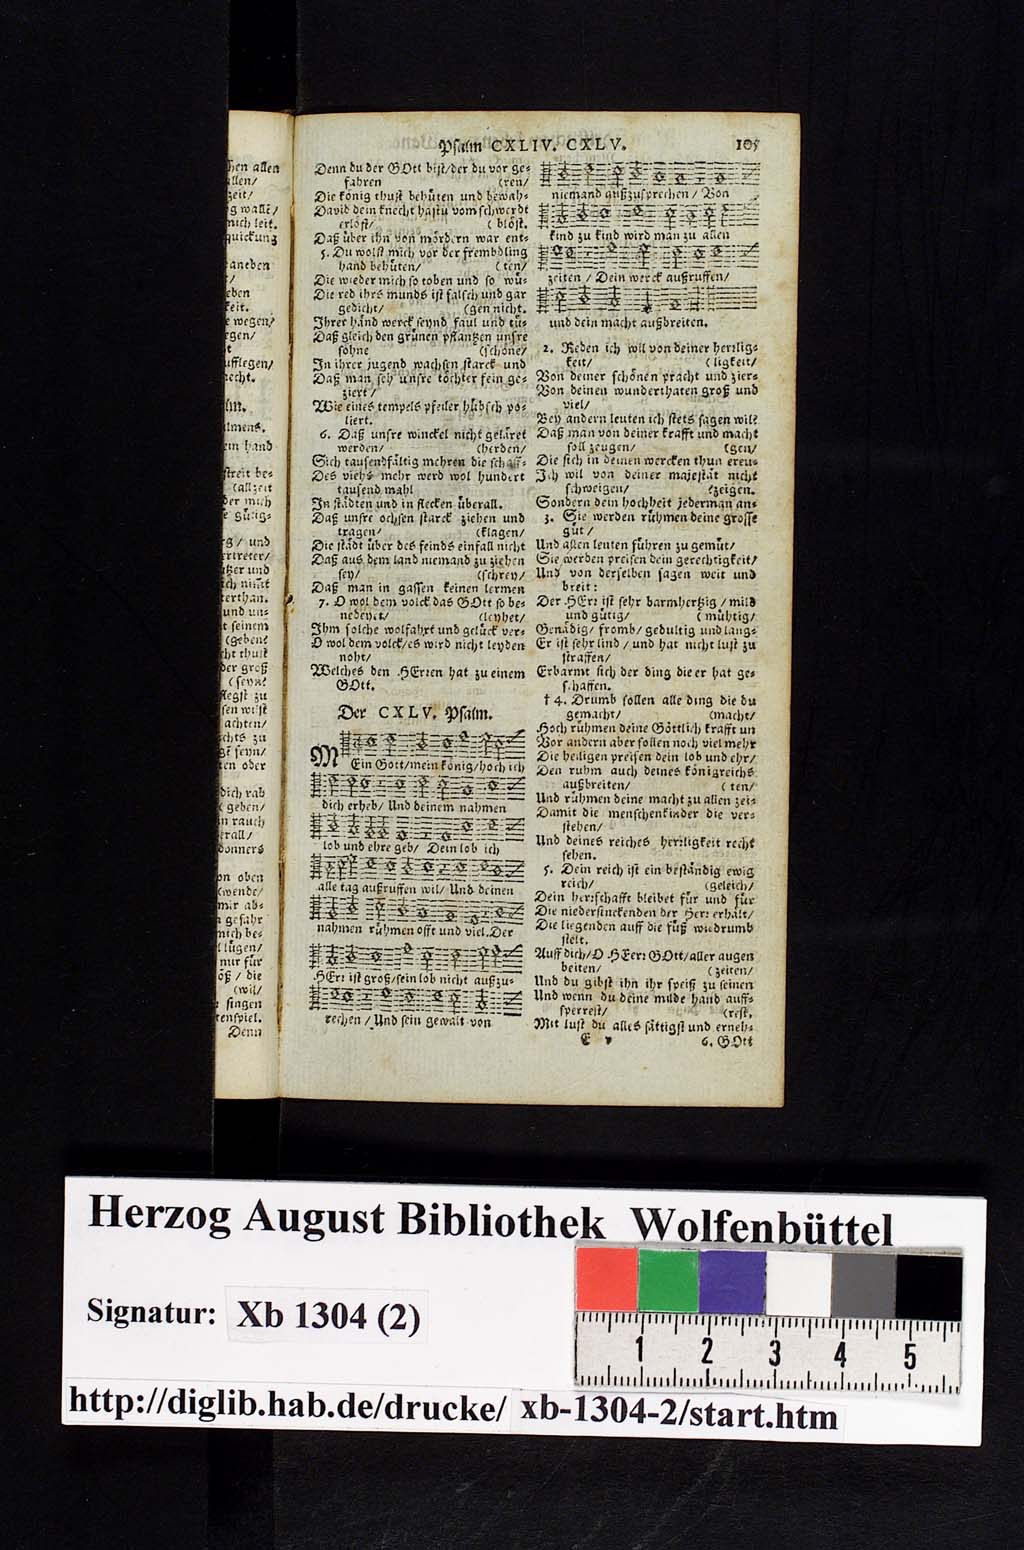 Psalm CXLIV. CXLV. 105
Denn du der GOtt bist/der du vor ge=
fahren (ren/
Die könig thust behüten und bewah=
David dein knecht hastu vom schwerdt
erlöst/ ( blöst.
Daß über ihn von mördern war ent=
5. Du wolst mich vor der frembdling
hand behüten/ (ten/
Die wieder mich so toben und so wü=
Die red ihrs munds ist falsch und gar
gedicht/ (gen nicht.
Ihrer händ werck seynd faul und tü=
Daß gleich den grünen pflantzen unsre
söhne (schöne/
In ihrer jugend wachsen starck und
Daß man seh unsre töchter fein ge=
ziert/
Wie eines tempels pfeiler hübsch po=
liert.
6. Daß unsre winckel nicht geläret
werden/ (herden/
Sich tausendfältig mehren die schaff=
Des viehs mehr werd wol hundert
tausend mahl
In städten und in flecken überall.
Daß unsre ochsen starck ziehen und
tragen/ (klagen/
Die städt über des feinds einfall nicht
Daß aus dem land niemand zu ziehen
sey/ (schrey/
Daß man in gassen keinen lermen
7. O wol dem volck das GOtt so be=
nedeyet/ (leyhet/
Ihm solche wolfahrt und gelück ver=
O wol dem volck/es wird nicht leyden
noht/
Welches den HErren hat zu einem
GOtt.
Der CXLV. Psalm.
MEin Gott/mein könig/hoch ich
dich erheb/ Und deinem nahmen
lob und ehre geb/ Dein lob ich
alle tag außruffen wil/ Und deinen
nahmen rühmen offt und viel. Der
HErr ist groß/sein lob nicht außzu=
rechen / Und sein gewalt von
niemand außzusprechen / Von
kind zu kind wird man zu allen
zeiten / Dein werck außruffen/
und dein macht außbreiten.
2. Reden ich wil von deiner herrlig=
keit/ ( ligkeit/
Von deiner schönen pracht und zier=
Von deinen wunderthaten groß und
viel/
Bey andern leuten ich stets sagen wil:
Daß man von deiner krafft und macht
soll zeugen/ (gen/
Die sich in deinen wercken thun ereu=
Ich wil von deiner majestät nicht
schweigen/ (zeigen.
Sondern dein hochheit jederman an=
3. Sie werden rühmen deine grosse
güt/
Und allen leuten führen zu gemüt/
Sie werden preisen dein gerechtigkeit/
Und von derselben sagen weit und
breit:
Der HErr ist sehr barmhertzig / mild
und gütig/ ( mühtig/
Genädig/ fromb/ gedultig und lang=
Er ist sehr lind / und hat nicht lust zu
straffen/
Erbarmt sich der ding die er hat ge=
schaffen.
† 4. Drumb sollen alle ding die du
gemacht/ (macht/
Hoch rühmen deine Göttlich krafft un
Vor andern aber sollen noch viel mehr
Die heiligen preisen dein lob und ehr/
Den ruhm auch deines königreichs
außbreiten/ ( ten/
Und rühmen deine macht zu allen zei=
Damit die menschenkinder die ver=
stehen/
Und deines reiches herrligkeit recht
sehen.
5. Dein reich ist ein beständig ewig
reich/ (geleich/
Dein herrschafft bleibet für und für
Die niedersinckenden der Herr erhält/
Die liegenden auff die füß wiedrumb
stelt.
Auff dich/O HErr GOtt/aller augen
beiten/ ( zeiten/
Und du gibst ihn ihr speiß zu seinen
Und wenn du deine milde hand auff=
sperrest/ (rest,
Mit lust du alles sättigst und erneh=
E v 6. GOtt
Herzog August Bibliothek Wolfenbüttel
Signatur: Xb 1304 (2)
1 2 3 4 5
http://diglib.hab.de/drucke/ xb-1304-2/start.htm